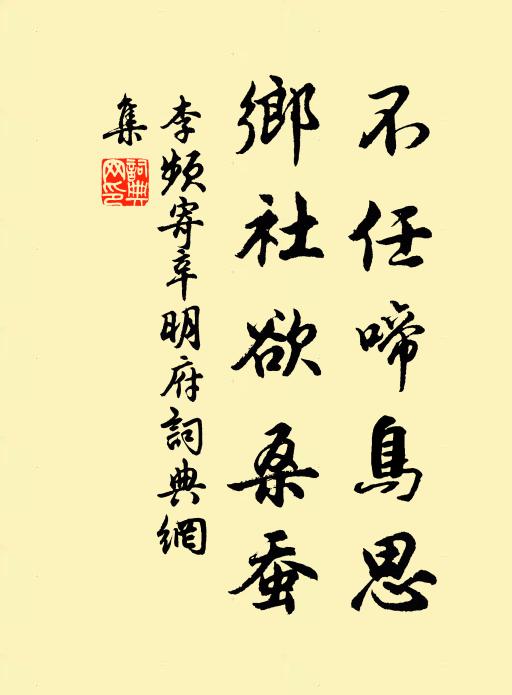 不任啼鳥思
鄉社欲桑蚕
李頻寄辛明府詞典網
集
詞典
网印